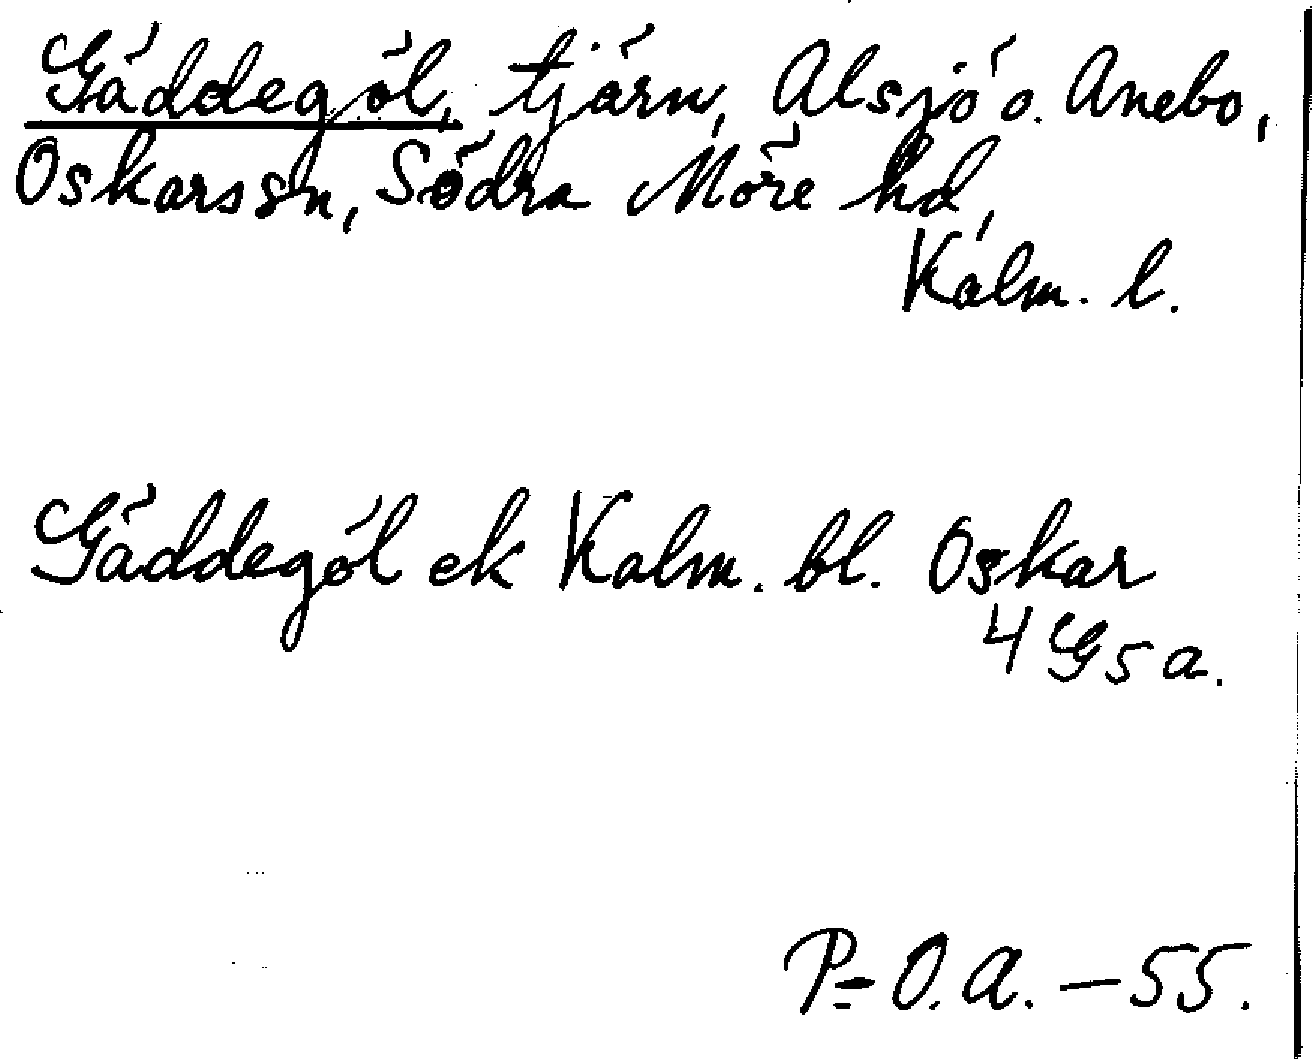 Gäddegöl, tjärn, Alsjö o. Anebo,
Oskars sn, Södra Möre hd,
Kalm. l.
Gäddegöl ek Kalm. bl. Oskar
4 G 5 a.
P-O.A. - 55.